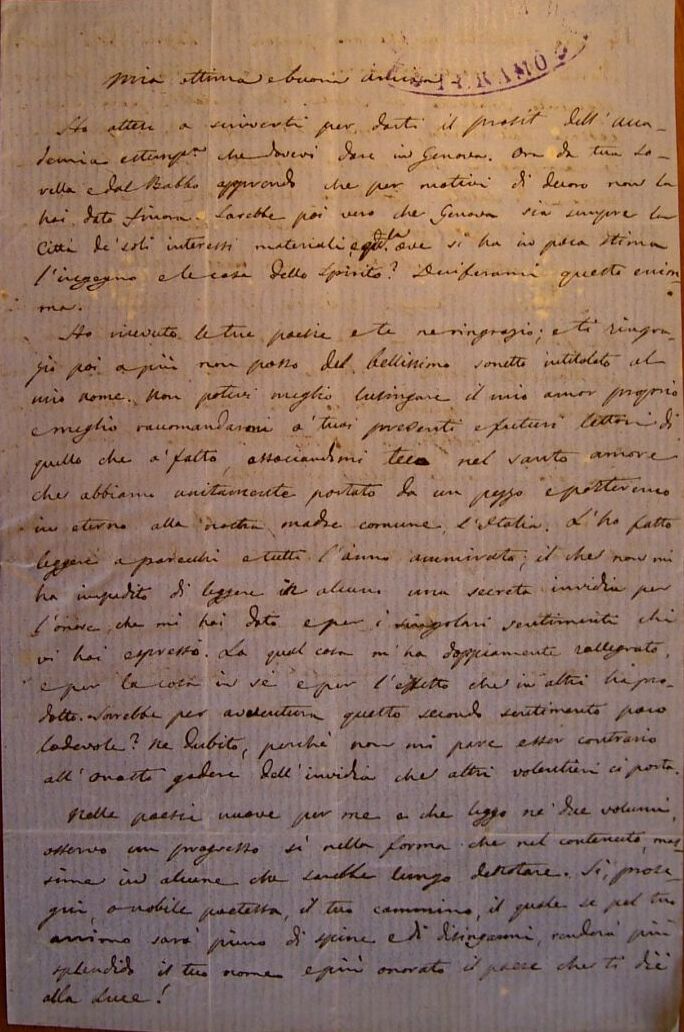 TERAMO
Mia ottima e buona amica
Ho atteso a scriverti per darti il prosit dell'acca-
demia estemp.ª che dovevi dare in Genova. Ora da tua so-
rella e dal Babbo apprendo che per motivi di decoro non la
hai data finora. Sarebbe poi vero che Genova sia sempre la
Città de' soli interessi materiali, e quella ove si ha in poca stima
l'ingegno e le cose dello Spirito? Deciferami questo enim-
ma.
Ho ricevuto le tue poesie e te ne ringrazio; e ti ringra-
zio poi a più non posso del bellissimo sonetto intitolato al
mio nome. Non potevi meglio lusingare il mio amor proprio
e meglio raccomandarmi a' tuoi presenti e futuri lettori di
quello che a' fatto, associandomi teco nel santo amore
che abbiamo unitamente portato da un pezzo e porteremo
in eterno alla nostra madre comune, l'Italia. L'ho fatto
leggere a parecchi e tutti l'anno ammirato; il che non mi
ha impedito di leggere in alcuno una secreta invidia per
l'onore che mi hai dato e per i singolari sentimenti che
vi hai espresso. La qual cosa m'ha doppiamente rallegrato,
e per la cosa in sé e per l'effetto che in altri ha pro-
dotto. Sarebbe per avventura questo secondo sentimento poco
lodevole? Ne dubito, perchè non mi pare esser contrario
all'onesto godere dell'invidia che altri volentieri ci porta.
Nelle poesie nuove per me e che leggo ne' due volumi,
osservo un progresso sì nella forma che nel contenuto, mas-
sime in alcune che sarebbe lungo detestare. Sì, prose-
gui, o nobile poetessa, il tuo cammino, il quale se pel tuo
animo sarà pieno di spine e di disinganni, renderà più
splendido il tuo nome e più onorato il paese che ti diè
alla luce!